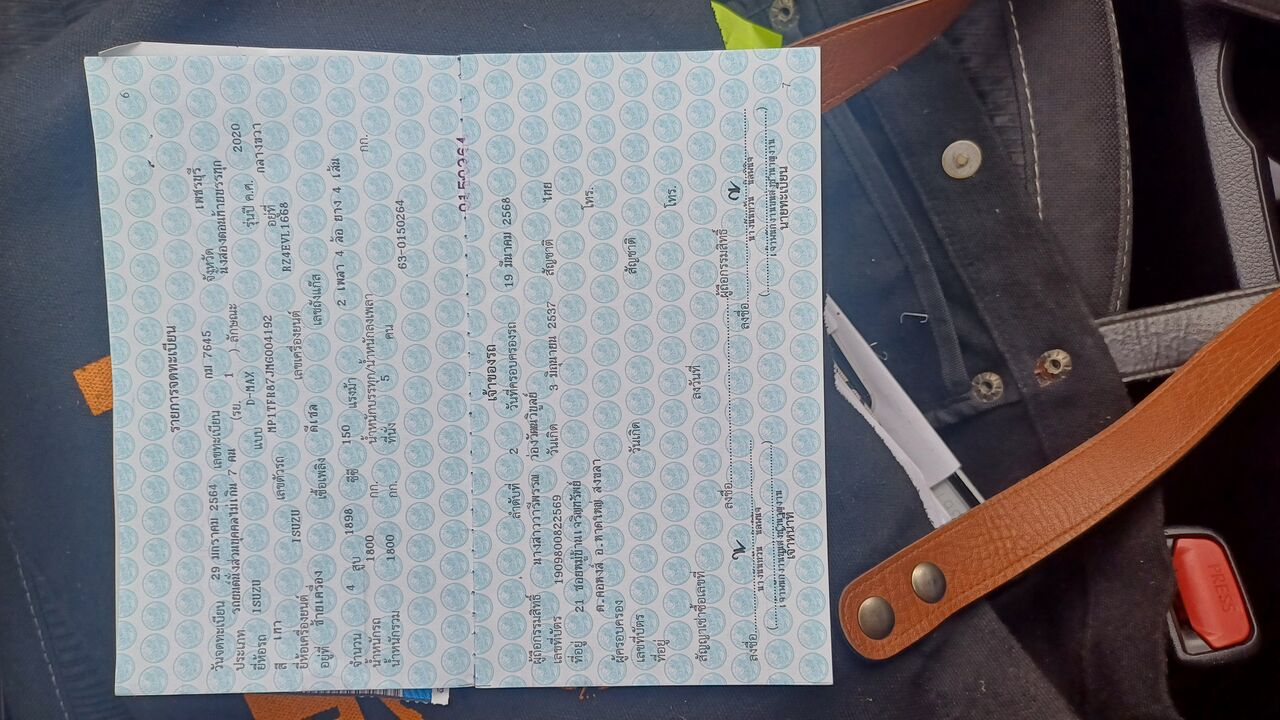 6
รายการจดทะเบียน
วันจดทะเบียน 29 มกราคม 2564 เลขทะเบียน กม 7645 จังหวัด เพชรบุรี
ประเภท รถยนต์นั่งส่วนบุคคลไม่เกิน 7 คน (รย. 1 ) ลักษณะ นั่งสองตอนท้ายบรรทุก
ยี่ห้อรถ ISUZU แบบ D-MAX รุ่นปี ค.ศ. 2020
สี เทา เลขตัวรถ MP1TFR87JMG004192 อยู่ที่ กลางขวา
ยี่ห้อเครื่องยนต์ ISUZU เลขเครื่องยนต์ RZ4EVL1668
อยู่ที่ ซ้ายเครื่อง เชื้อเพลิง ดีเซล เลขถังแก๊ส
จำนวน 4 สูบ 1898 ซีซี 150 แรงม้า 2 เพลา 4 ล้อ ยาง 4 เส้น
น้ำหนักรถ 1800 กก. น้ำหนักบรรทุก/น้ำหนักลงเพลา กก.
น้ำหนักรวม 1800 กก. ที่นั่ง 5 คน 63-0150264
0150264
เจ้าของรถ
ลำดับที่ 2 วันที่ครอบครองรถ 19 มีนาคม 2568
ผู้ถือกรรมสิทธิ์ นางสาววารีพรรณ ว่องวัฒนวิบูลย์
เลขที่บัตร 1909800822569 วันเกิด 3 มิถุนายน 2537 สัญชาติ ไทย
ที่อยู่ 21 ซอยหมู่บ้านเจริญทรัพย์ โทร.
ต.คอหงส์ อ.หาดใหญ่ สงขลา
ผู้ครอบครอง
เลขที่บัตร วันเกิด สัญชาติ
ที่อยู่ โทร.
สัญญาเช่าซื้อเลขที่ ลงวันที่
ลงชื่อ ผู้ถือกรรมสิทธิ์
ลงชื่อ ลงชื่อ
( ) ( )
เจ้าหน้าที่ นายทะเบียน
7
PRESS